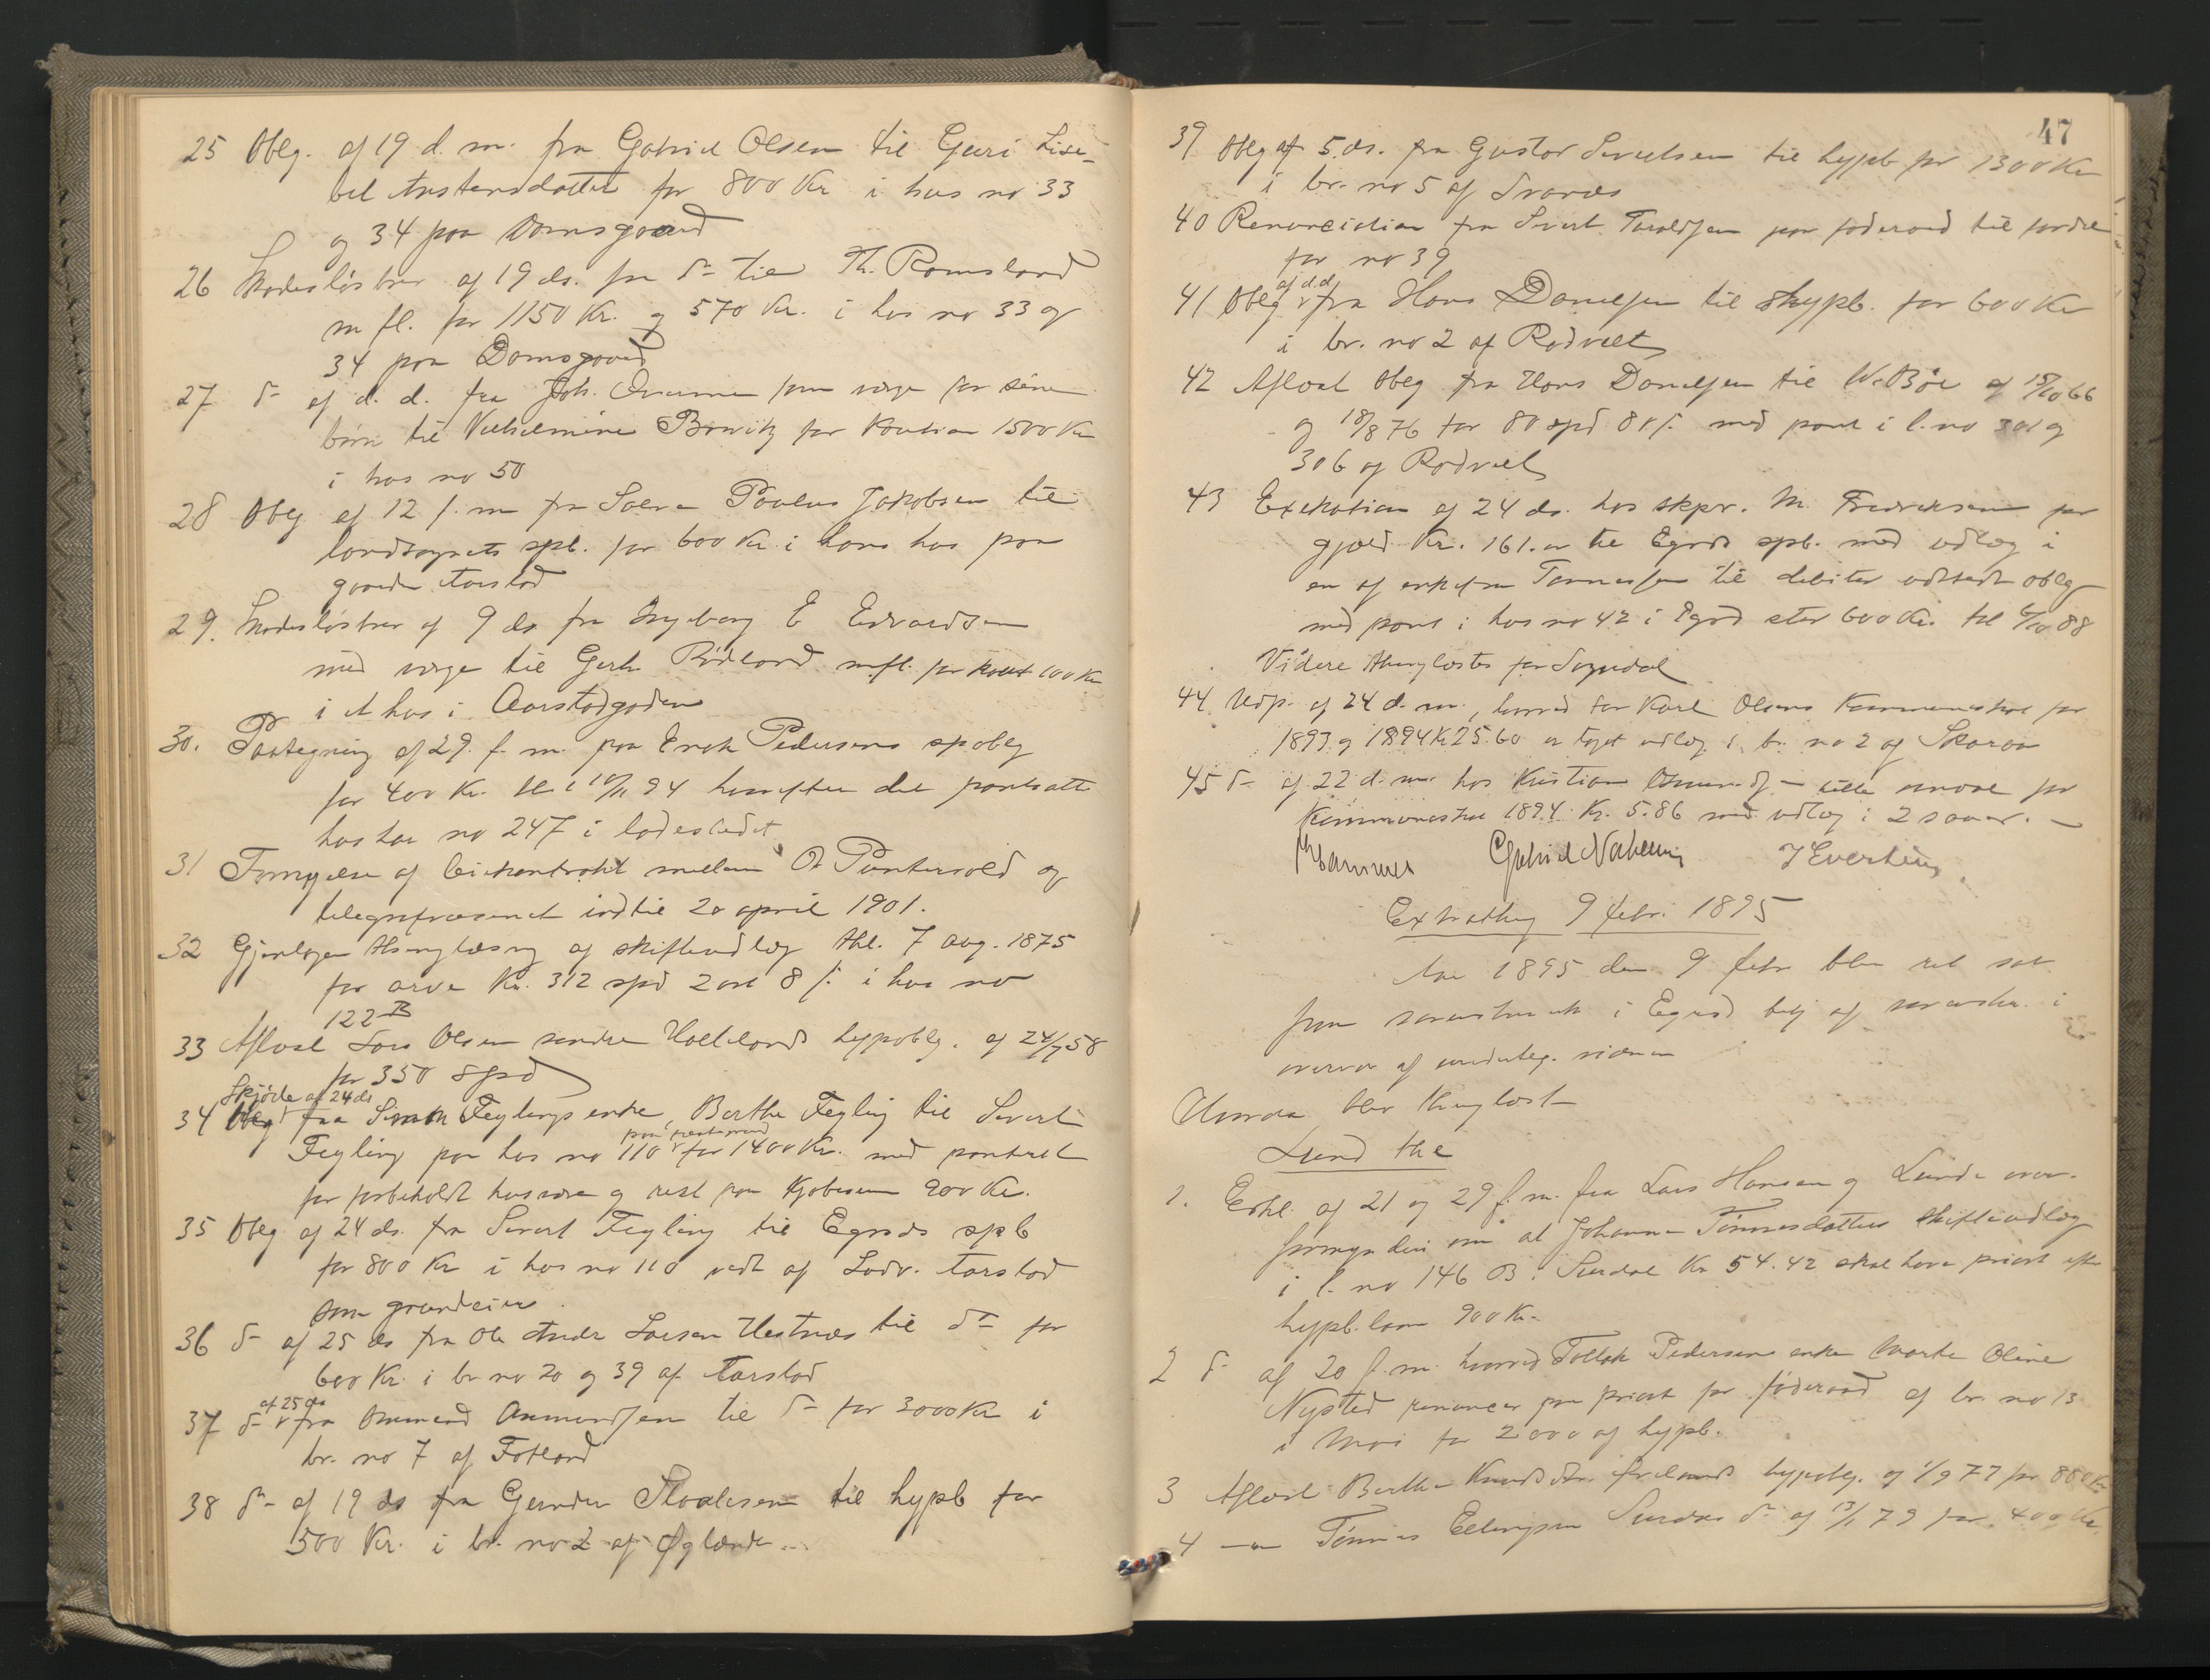 25 Oblg. af 19 d. m. fra Gabriel Olsen til Guri Lise-
bet Torstensdatter for 800 Kr i hus no 33
og 34 paa Damsgaard
26 Skadesløsbrev af 19 ds. fra do til Th. Ramsland
m fl. for 1150 Kr. og 570 Kr. i hus no 33 og
34 paa Damsgaard
27 do af d. d. fra Joh. som verge for sine
børn til Vilhelmine for Kaution 1500 Kr
i hus no 50
28 Oblg af 12 f. m fra Paulus Jakobsen til
landsognets spb. for 600 Kr. i hans hus paa
gaarden Aarstad
29. Skadesløsbrev af 9 ds fra Ingeborg E Edvardsen
med verge til Gerh. Rødland mfl. for 100 Kr
i et hus i Aarstadgaden
30. Paategning af 29. f. m. paa Enok Pedersens spoblg
for 400 Kr. thl 94 hvorefter det pantsatte
hus har no 247 i ladestedet
31 Fornyelse af leiekontrakt mellem O Puntervold og
telegrafvæsenet indtil 20 april 1901.
32 Gjentagen thinglæsng af skifteudlæg thl. 7 aug. 1875
for arve Kr. 312 spd 2 ort 8 s i hus no
122 B
33 Aflæst Lars Olsen søndre Hællelands hypoblg. af 24/7 58
for 350 Spd
Skjøde af 24 ds
34 fra Simon Feylings enke Berthe Feyling til Sivert
paa festegrund
Feyling paa hus no 110 for 1400 Kr. med pantret
for forbeholdt husvære og rest paa Kjøbesum 900 Kr.
35 Oblg af 24 ds. fra Sivert Feyling til Egrsds spb
for 800 Kr i hus no 110 vedt af Ludv. Aarstad
som grundeier.
36 do af 25 ds fra Ole Andr Larsen Hestnæs til do for
600 Kr. i br no 20 og 39 af Aarstad
af 25 ds
37 do fra Aanund til do for 3000 Kr i
br. no 7 af Fotland
38 do af 19 ds fra Gunder til hypb for
500 Kr. i br. no 2 af Øglænd
47
39 Oblg af 5. ds. fra Gustav Sivertsen til hypb for 1300 Kr
i br. no 5 af Svanæs
40 Renonciation fra Sivert Taraldsen paa føderaad til fordel
for no 39
af d.d.
41 Oblg fra Hans Danielsen til hypb. for 600 Kr
i br. no 2 af Rødvelt
42 Aflæst Oblg fra Hans Danielsen til W. Bøe af 15/10 66
og 18/8 76 for 80 spd 80 s med pant i l. no 301 og
306 af Rødvelt
43 Exekution af 24 ds. hos skpr. M. Fredriksen for
gjæld Kr. 161. til Egrsds spb. med udlæg i
en af enkefru Tønnessen til debitor udstedt oblg
med pant i hus no 42 i Egrsd stor 600 Kr. thl 88
Videre thinglæstes for Sogndal
44 Udp. af 24 d. m., hvorved for Karl Olsens Kommuneskat for
1893 og 1894 Kr 25.60 er taget udlæg i br. no 2 af Skaraa
45 do af 22 d. m. hos Kristian for
Kommuneskat 1894. Kr. 5.86 med udlæg i 2 sauer. —
Gabriel J Evertsen
Extrathing 9 febr. 1895
Aar 1895 den 9 febr blev ret sat
paa sorenskr.k. i Egrsd bej af sorenskr. i
overvær af underteg. vidner
Hvorda blev thinglæst
Lund thl
1. Erkl. af 21 og 29 f. m. fra Lars Hansen og Lunds over-
formynderi om at Johanne Tønnesdatters skifteudlæg
i l. no 146 B i Surdal Kr 54.42 skal have priort efter
hypb. laan 900 Kr.
2 do af 20 f. m. hvorved Tollak Pedersens enke Marte Oline
Nysted renoncer paa priort for føderaad af br. no 13
i Moi for 2000 af hypb.
3 Aflæst Berthe Knudsdtr. hypoblg. af 1/9 77 for 880 Kr
4 — Tønnes Ellingsen Surdal do af 13/1 79 for 400 Kr.